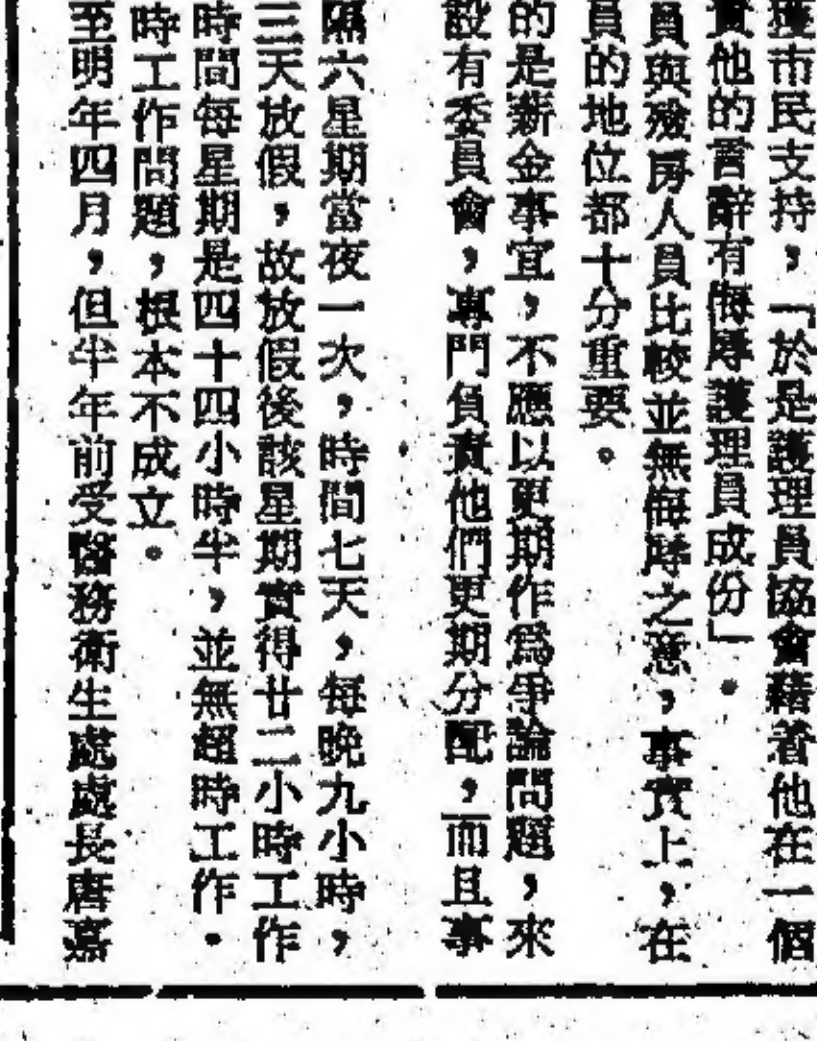 獲市民支持，「於是護理員協會藉着他在一個
責他的言辭有侮辱護理員成份」。
員與殮房人員比較並無侮辱之意，事實上，在
員的地位都十分重要。
的是薪金事宜，不應以更期作爲爭論問題，來
設有委員會，專門負責他們更期分配，而且事
隔六星期當夜一次，時間七天，每晚九小時，
三天放假，故放假後該星期實得廿二小時工作
時間每星期是四十四小時半，並無超時工作．
時工作問題，根本不成立。
至明年四月，但半年前受醫務衞生處處長唐嘉